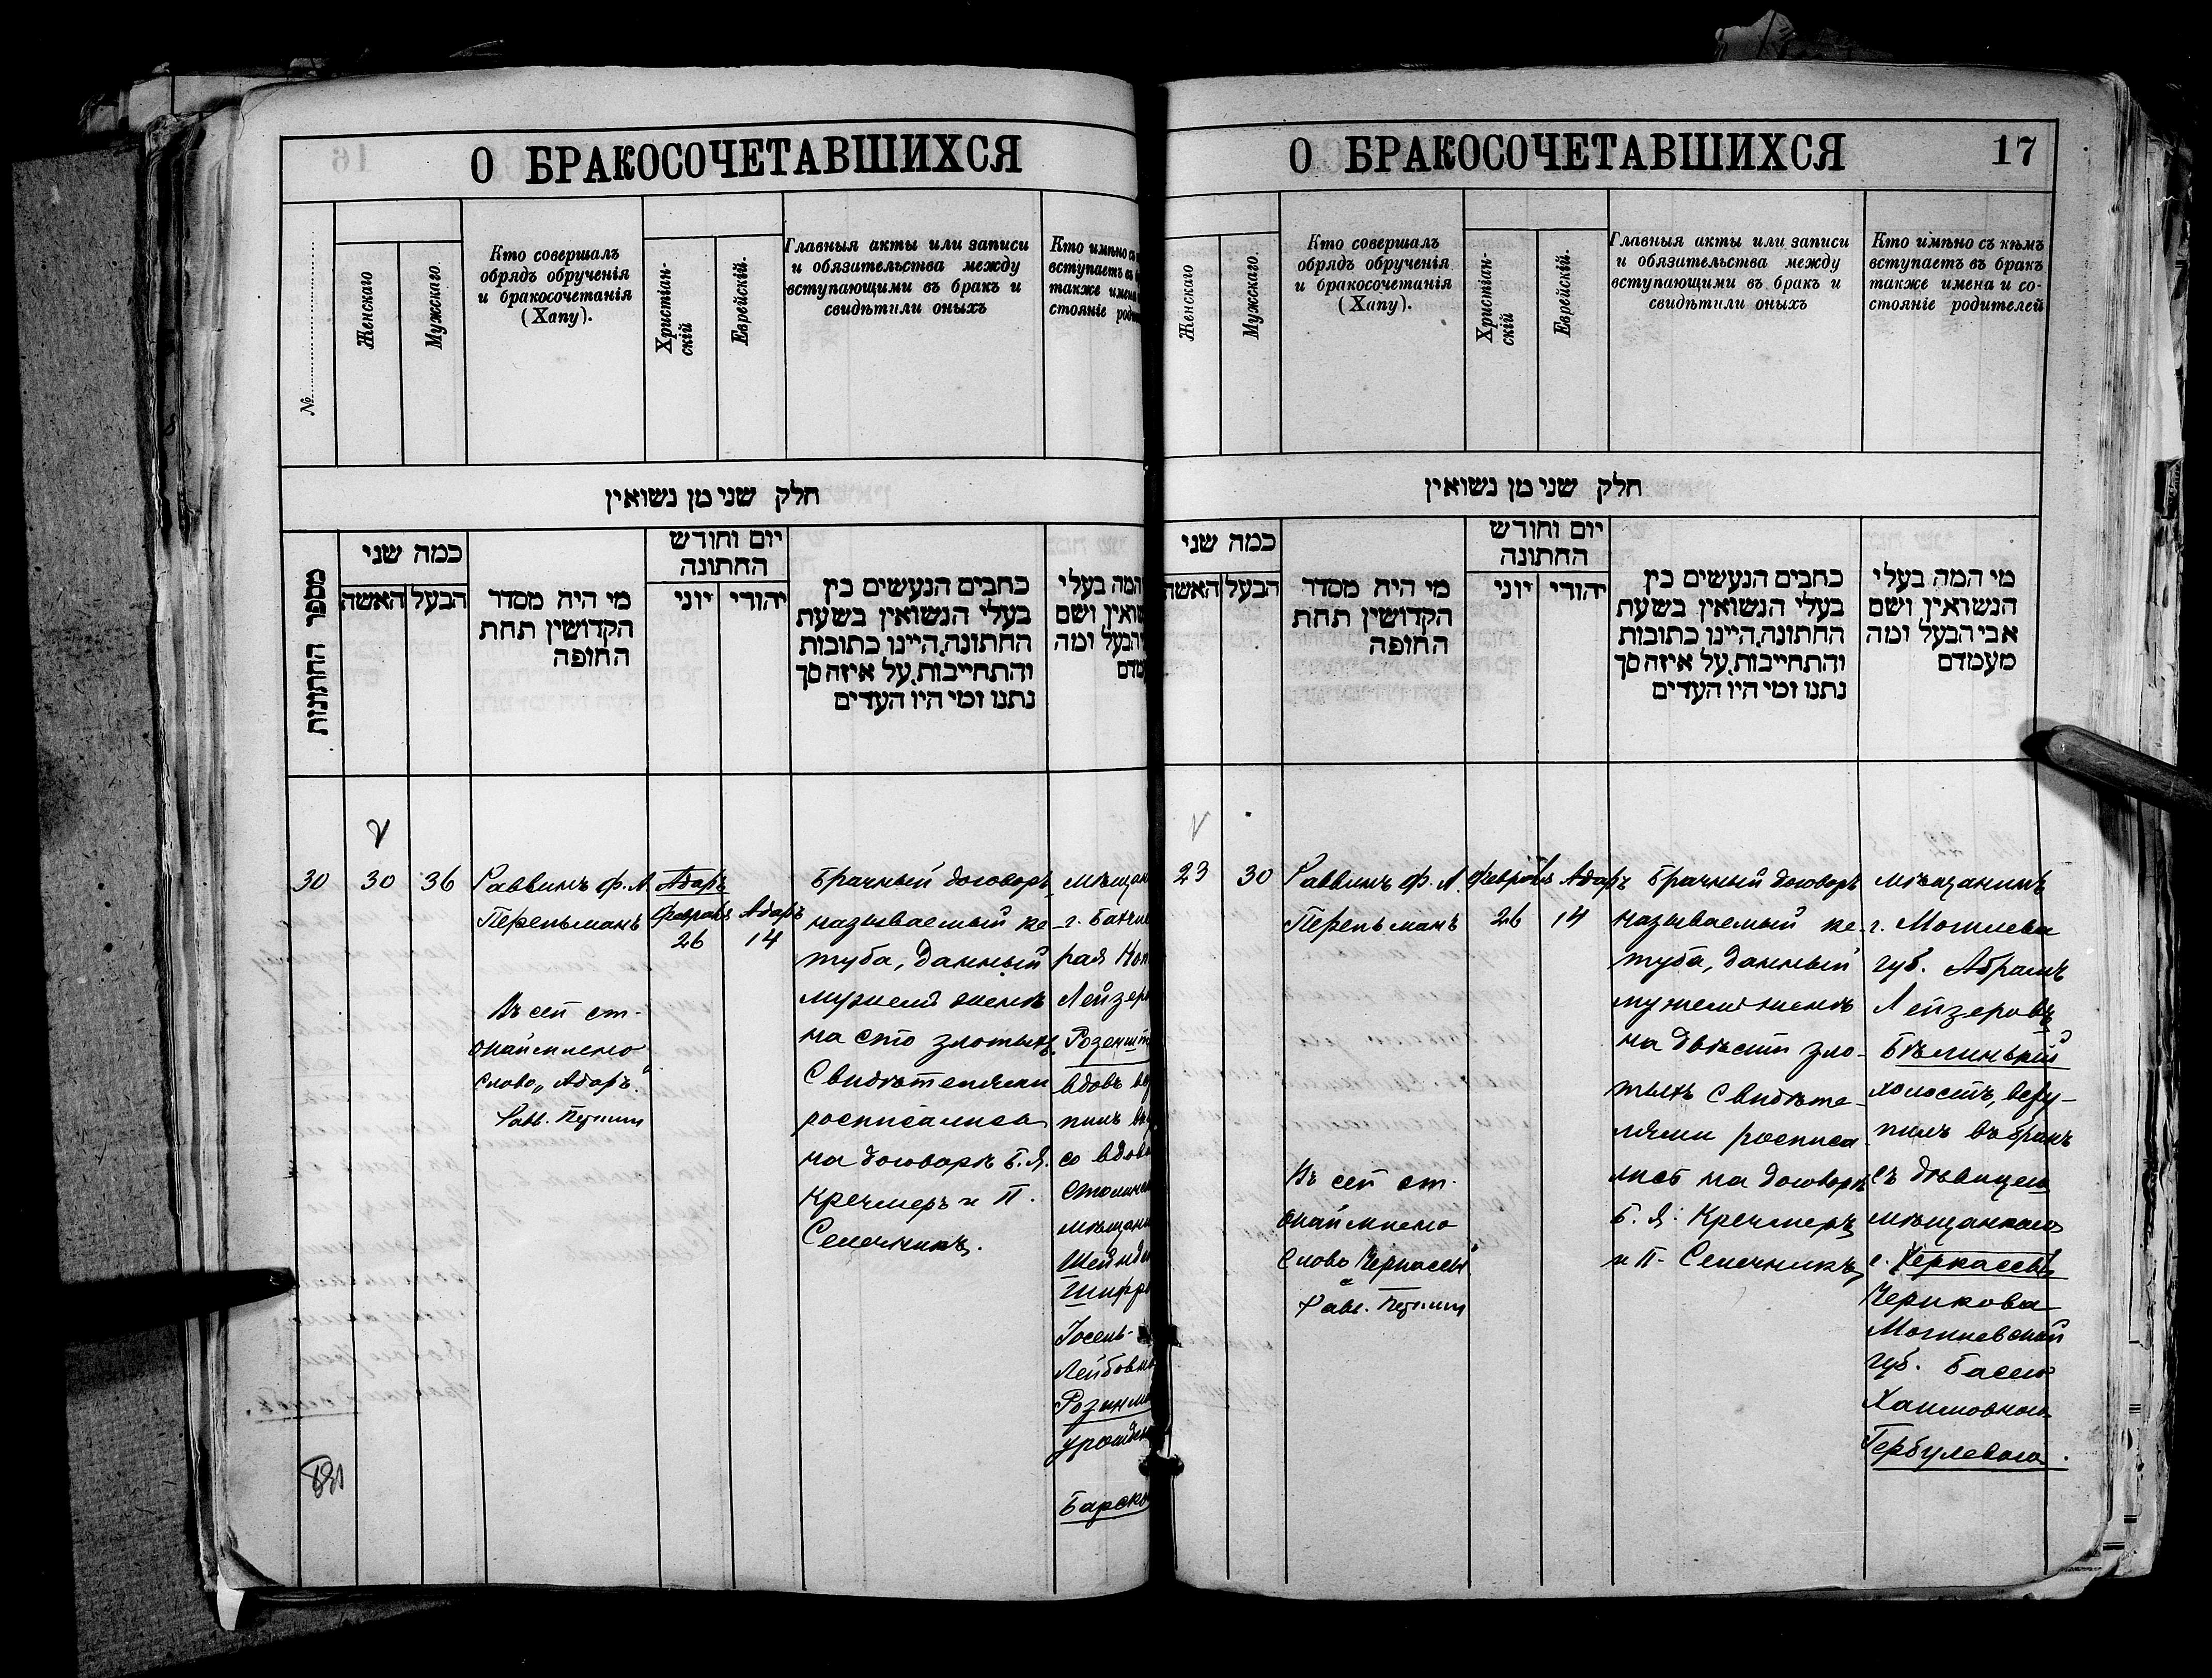 О БРАКОСОЧЕТАВШИХСЯ
№
Женскаго
Мужскаго
Кто совершалъ
обрядъ обрученія
и бракосочетанія
(Хапу).
Христіан-
скій
Еврейскій.
Главныя акты или записи
и обязательства между
вступающими въ бракъ и
свидѣтили оныхъ
Кто имѣно съ
вступаетъ въ
также имена
стояніе
חלק שני מן נשואין
מספר החתונות
כמה שני
האשה
הבעל
מי היה מסדר
הקדושין תחת
החופה
יום וחודש
החתונה
יוני
יהודי
כתבים הנעשים בין
בעלי הנשואין בשעת
החתונה.היינו כתובות
והתחייבות.על איזה סך
נתנו ומי היו העדים
המה בעלי
ושם
הבעל ומה
30
30
36
Раввинъ Ф. А.
Перельманъ
Адаръ
Февраль
26
Адаръ
14
Въ сей ст.
слово „Адаръ"
Брачный договоръ
называемый ке-
туба, данный
мужемъ женѣ
на сто злотыхъ
Свидѣтелями
росписались
на договорѣ Б. Я.
Кречмеръ и П.
Селечникъ.
г.
рая
Лейзер
вдовъ
пилъ
со вдов
Лейбовн
Барск
О БРАКОСОЧЕТАВШИХСЯ
17
Женскаго
Мужскаго
Кто совершалъ
обрядъ обрученія
и бракосочетанія
(Хапу).
Христіан-
скій
Еврейскій.
Главныя акты или записи
и обязательства между
вступающими въ бракъ и
свидѣтили оныхъ
Кто имѣно съ кѣмъ
вступаетъ въ бракъ
также имена и со-
стояніе родителей
חלק שני מן נשואין
כמה שני
האשה
הבעל
מי היה מסדר
הקדושין תחת
החופה
יום וחודש
החתונה
יוני
יהודי
כתבים הנעשים בין
בעלי הנשואין בשעת
החתונה.היינו כתובות
והתחייבות.על איזה סך
נתנו ומי היו העדים
מי המה בעלי
הנשואין ושם
אבי הבעל ומה
מעמדם
23
30
Раввинъ Ф. А.
Перельманъ
Февраль
26
Адаръ
14
Въ сей ст.
слово Черкассы
Брачный договоръ
называемый ке-
туба, данный
мужемъ женѣ
на двѣсти зло-
тыхъ Свидѣте-
лями росписа-
лись на договорѣ
Б. Я. Кречмеръ
и П. Селечникъ
мѣщанинъ
г. Могилева
губ. Абрамъ
Лейзеровъ
Бѣлинькій
холостъ, всту-
пилъ въ бракъ
съ дѣвицею
мѣщанкою
г. Черкассы
Черикова
Могилевской
губ. Басею
Хаимовною
Гербулевою.